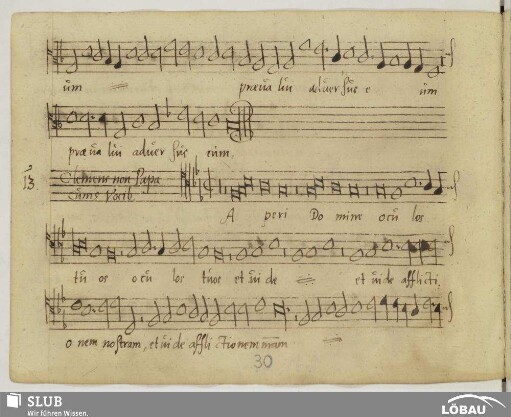 um præualui aduersus e um
præualui aduersus eum,
13. Clemens non Papa
Cums Vocib.
A peri Do mine ocu los
tu os ocu los tuos et ui de et uide afflicti
o nem nostram, et uide affli ctionem
30
SLUB
Wir führen Wissen.
LÖBAU